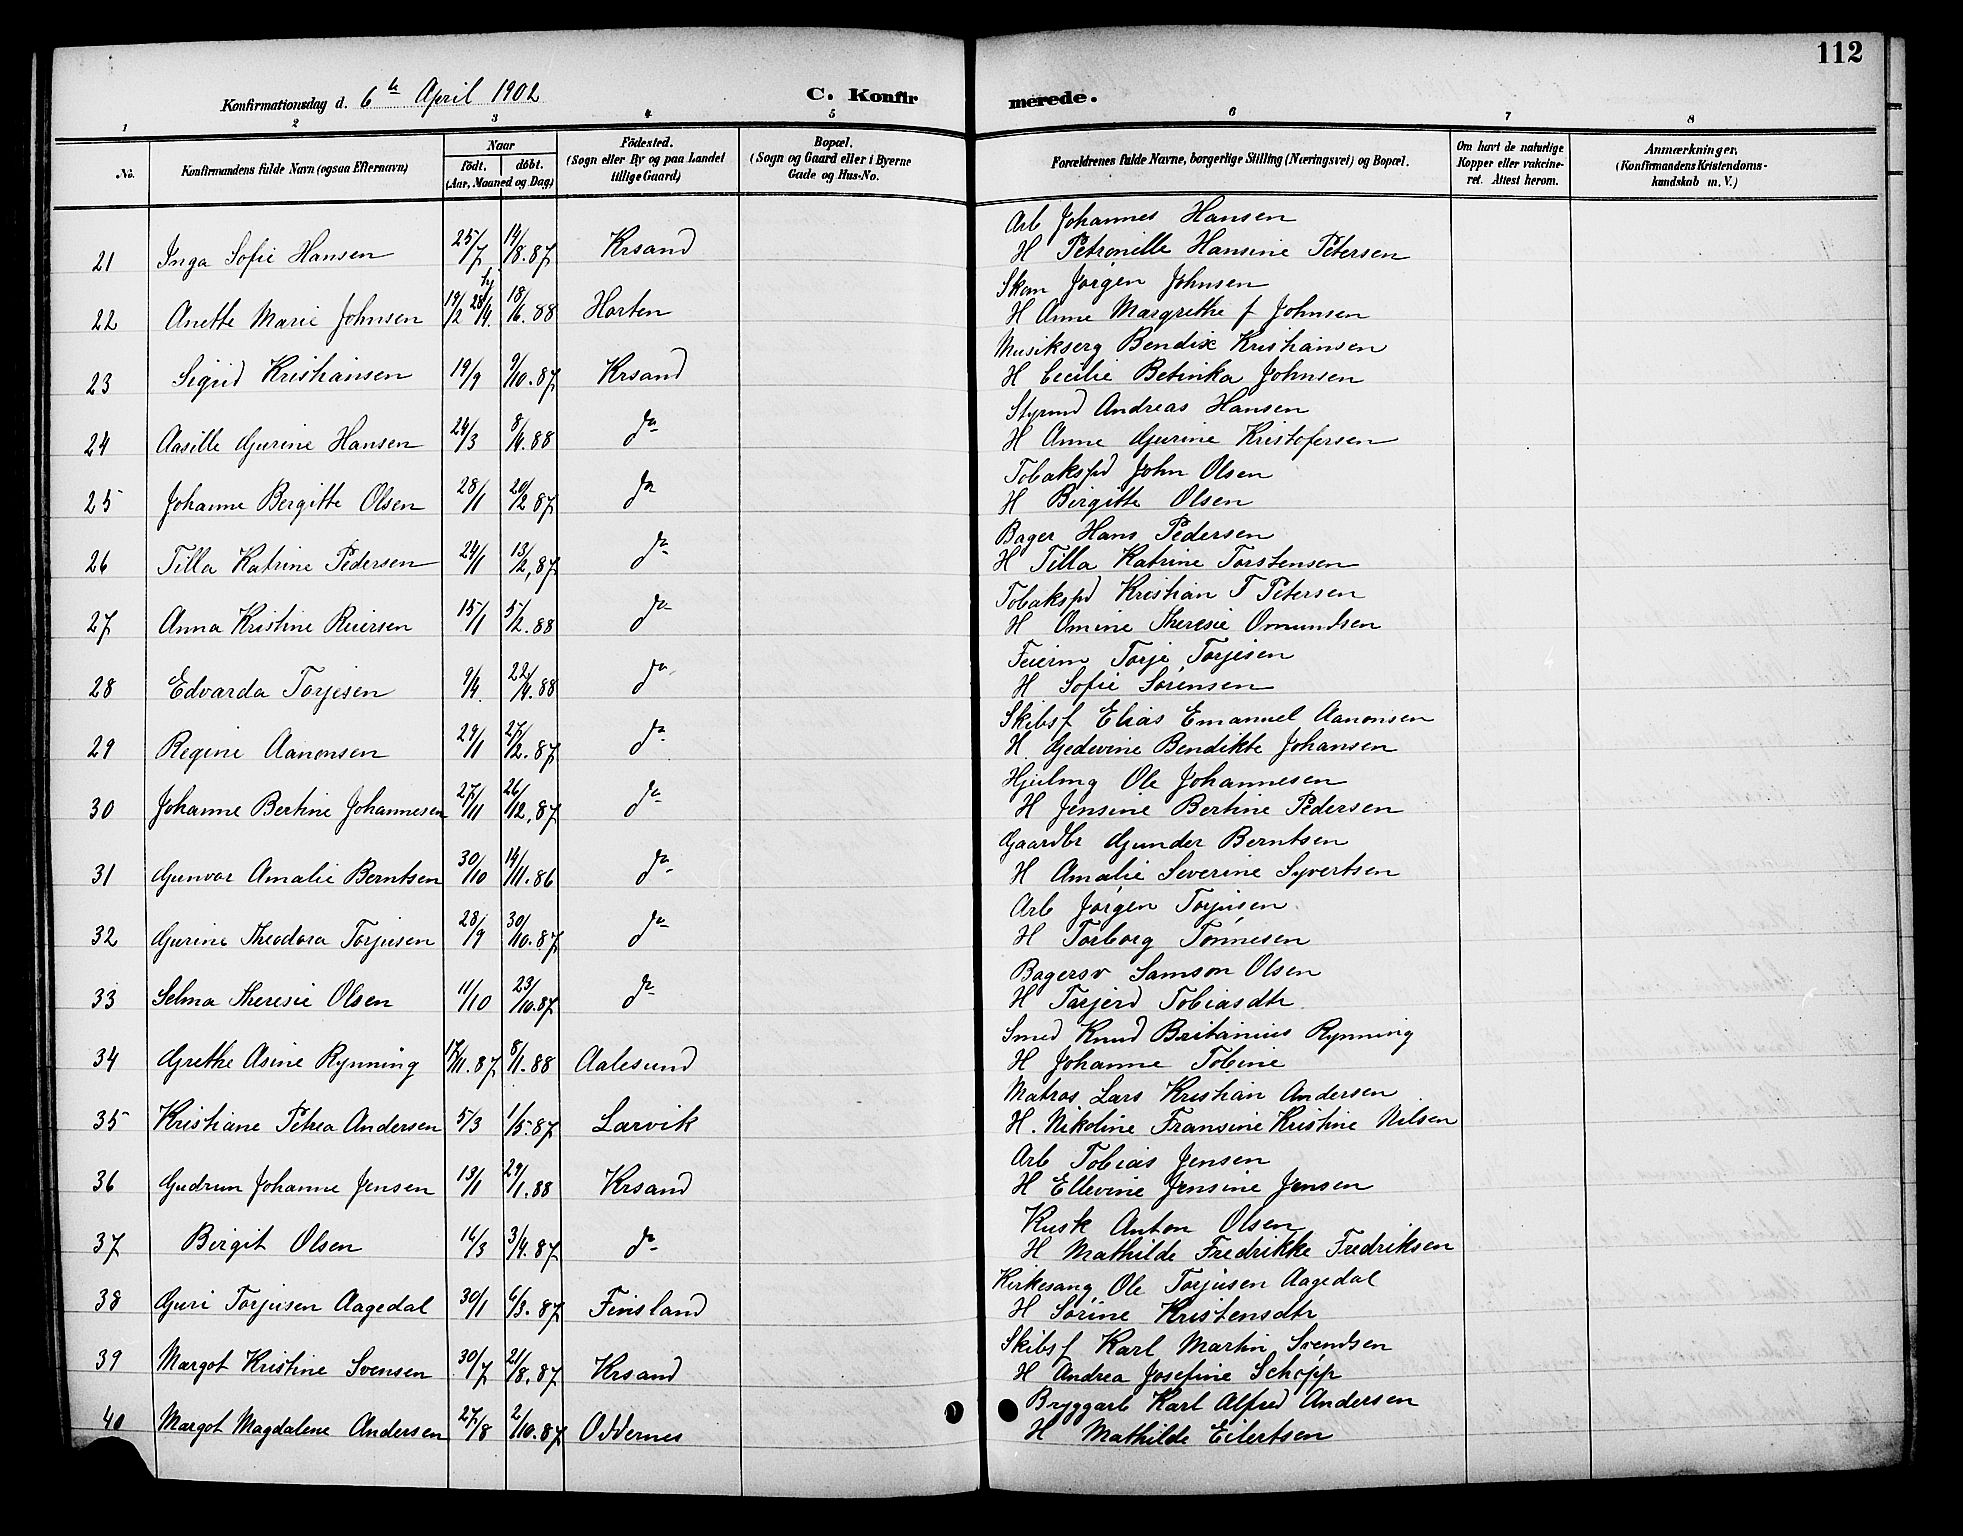 112
Konfirmationsdag d. 6te April 1902
C. Konfirmerede.
1 2 3 4 5 6 7 8
No.
Konfirmandens fulde Navn (ogsaa Efternavn)
Naar
födt. döbt.
(Aar, Maaned og Dag)
Födested.
(Sogn eller By og paa Landet
tillige Gaard)
Bopæl.
(Sogn og Gaard eller i Byerne
Gade og Hus-No.
Forældrenes fulde Navne, borgerlige Stilling (Næringsvei) og Bopæl.
Om havt de naturlige
Kopper eller vakcine-
ret. Attest herom.
Anmærkninger,
(Konfirmandens Kristendoms-
kundskab m. V.)
Arb Johannes Hansen
21 Inga Sofie Hansen 25/7 14/8.87 Krsand H Petronille Hansine Petersen
Skom Jørgen Johnsen
22 Anette Marie Johnsen 19/2 hj 28/4. 18/6.88 Horten H Anne Margrethe f Johnsen
Musikserg Bendix Kristiansen
23 Sigrid Kristiansen 19/9 9/10.87 Krsand H Cecilie Betinka Johnsen
Styrmd Andreas Hansen
24 Aasille Gurine Hansen 24/3 8/4.88 do H Anne Gurine Kristofersen
Tobakspd John Olsen
25 Johanne Bergitte Olsen 28/1 20/2 87 do H Birgitte Olsen
Bager Hans Pedersen
26 Tilla Katrine Pedersen 24/1 13/2,87 do H Tilla Katrine Torstensen
Tobakspd Kristian T Petersen
27 Anna Kristine Reiersen 15/1 5/2.88 do H Omine Theresie Omundsen
Feierm Torje Torjesen
28 Edvarda Torjesen 9/4. 22/4.88 do H Sofie Sørensen
Skibsf Elias Emanuel Aanonsen
29 Regine Aanonsen 29/1 27/2.87 do H Gedevine Bendikte Johansen
Hjulmg Ole Johannesen
30 Johanne Bertine Johannesen 27/11 26/12,87 do H Jensine Bertine Pedersen
Gaardbr Gunder Berntsen
31 Gunvor Amalie Berntsen 30/10 14/11.86 do H Amalie Severine Syvertsen
Arb Jørgen Torjusen
32 Gurine Theodora Torjusen 28/9 30/10.87 do H Torborg Tønnesen
Bagersv Samson Olsen
33 Selma Theresie Olsen 11/10 23/10.87 do H Tarjerd Tobiasdtr
Smed Knud Britanius Rynning
34 Grethe Asine Rynning 17/11.87 8/1.88 Aalesund H Johanne Tobine
Matros Lars Kristian Andersen
35 Kristiane Petrea Andersen 5/3 1/5.87 Larvik H. Nikoline Fransine Kristine Nilsen
Arb Tobias Jensen
36 Gudrun Johanne Jensen 13/1 29/1.88 Krsand H Ellevine Jensine Jensen
Kusk Anton Olsen
37 Birgit Olsen 16/3 3/4.87 do H Mathilde Fredrikke Fredriksen
Kirkesang Ole Torjusen Aagedal
38 Guri Torjusen Aagedal 30/1 6/3.87 Finsland H Sørine Kristensdtr
Skibsf Karl Martin Svendsen
39 Margot Kristine Svensen 30/7 21/8.87 Krsand H Andrea Josefine Schøpp
Bryggarb Karl Alfred Andersen
40 Margot Magdalene Andersen 27/8 2/10.87 Oddernes H Mathilde Eilertsen